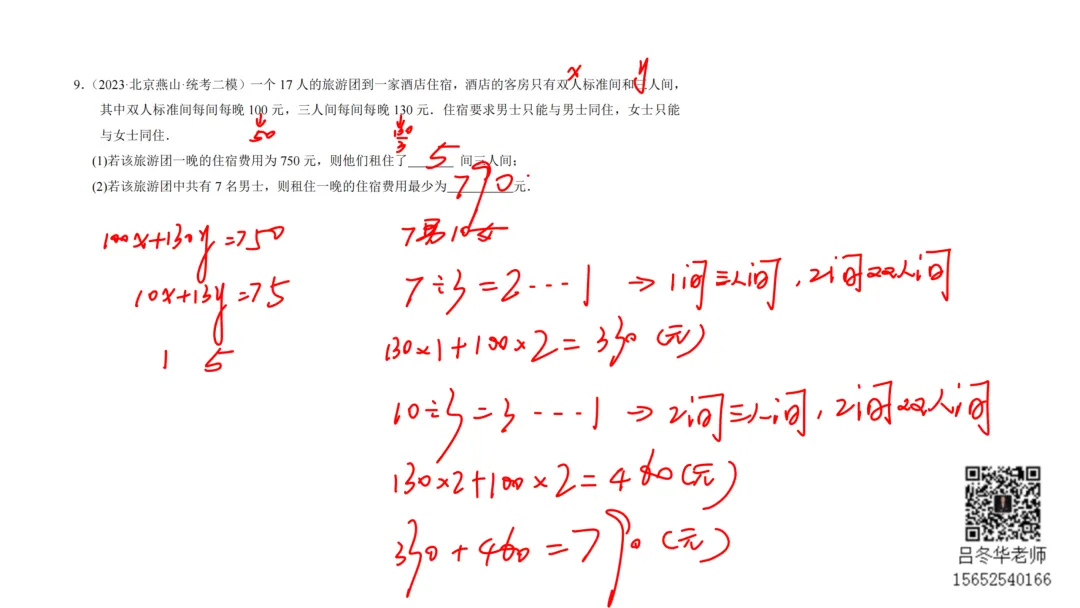 9.（2023·北京燕山·统考二模）一个 17 人的旅游团到一家酒店住宿，酒店的客房只有双人标准间和三人间，
x
y
其中双人标准间每间每晚 100 元，三人间每间每晚 130 元．住宿要求男士只能与男士同住，女士只能
与女士同住．
50
130/3
(1)若该旅游团一晚的住宿费用为 750 元，则他们租住了 5 间三人间；
(2)若该旅游团中共有 7 名男士，则租住一晚的住宿费用最少为 790 元．
100x+130y=750
10x+13y=75
1 5
7男10女
7÷3=2…1 → 1间三人间，2间双人间
130×1+100×2=330（元）
10÷3=3…1 → 2间三人间，2间双人间
130×2+100×2=460（元）
330+460=790（元）
吕冬华老师
15652540166